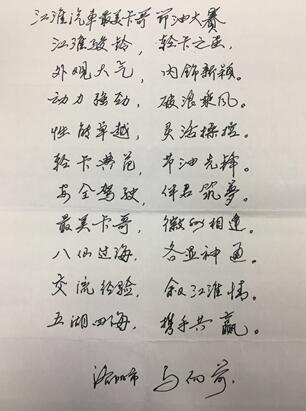 江淮汽车最美卡哥节油大赛
江淮骏铃，轻卡之王，
外观大气，内饰新颖。
动力强劲，破浪乘风。
性能卓越，灵活操控。
轻卡典范，节油先锋。
安全驾驶，伴君筑梦。
最美卡哥，徽州相逢。
八仙过海，各显神通。
交流经验，叙江淮情。
五湖四海，携手共赢。
洛阳市 马